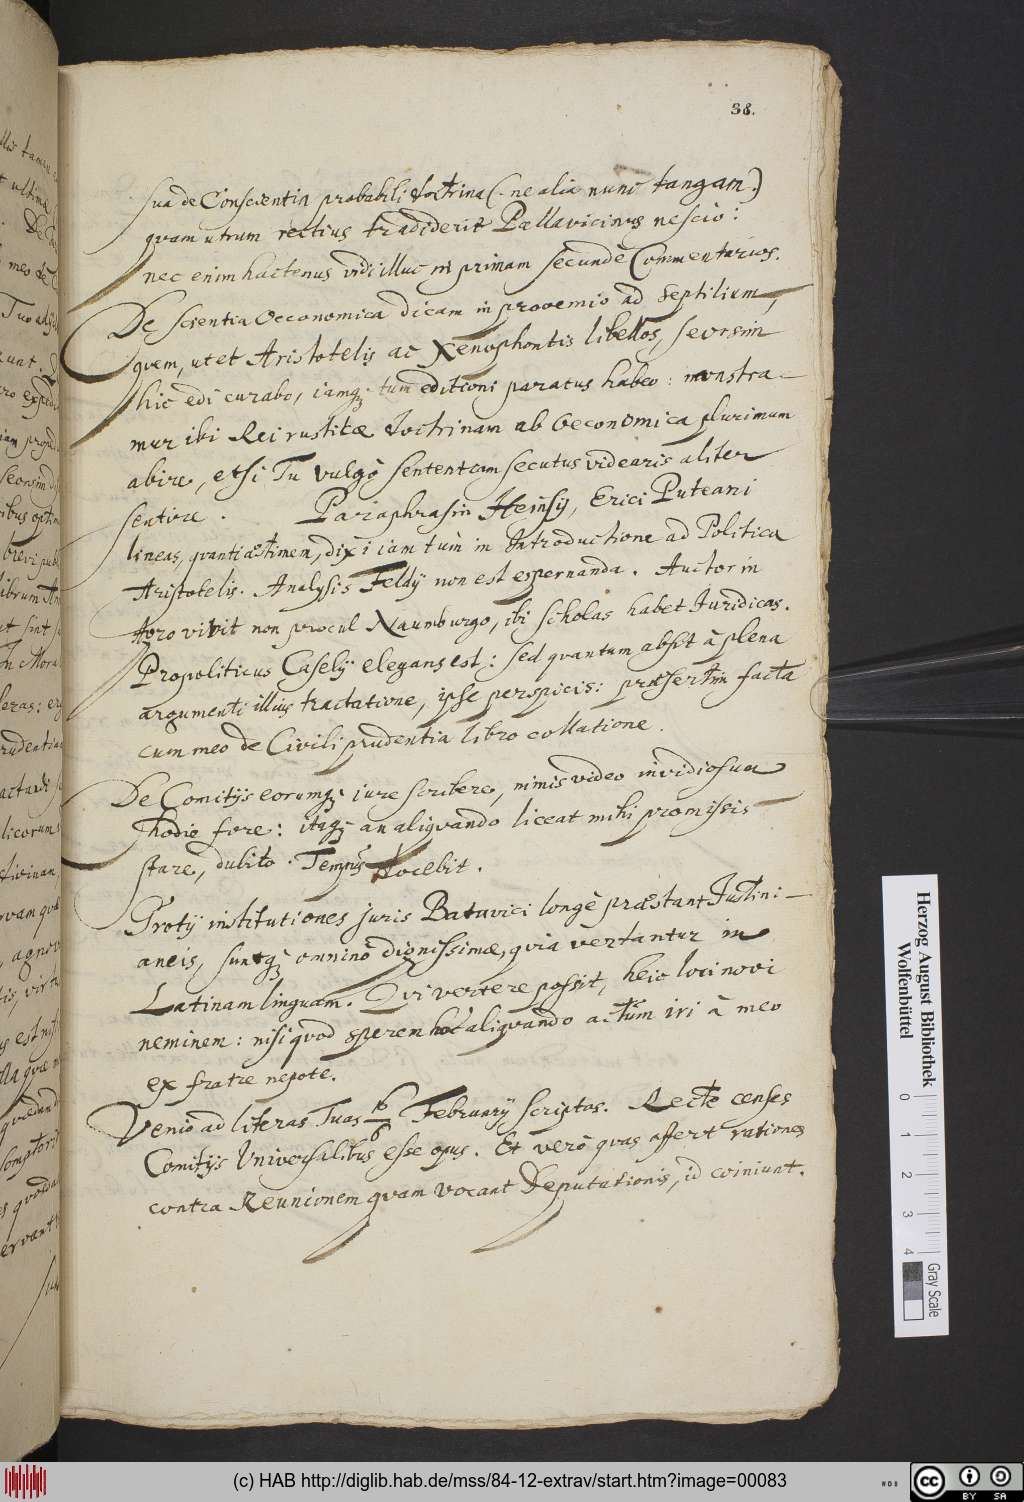 38.
sua de Conscientia probabili doctrina (ne alia nunc tangam.)
quam utrum rectius tradiderit Pallavicinus nescio:
nec enim hactenus vidi illuc in primam secundæ Commentarios.
De scientia Oeconomica dicam in prooemio ad Septilium,
quem, ut et Aristotelis ac Xenophontis libellos, seorsim
hic edi curabo, iamq; tum editioni paratus habeo: monstra-
mur ibi Rei rusticæ doctrinam ab Oeconomica plurimum
abire, etsi Tu vulgò sententiam secutus videaris aliter
sentire. Pariaphrasin Heinsij, Erici Puteani
lineas, quanti æstimem, dixi iam tùm in Introductione ad Politica
Aristotelis. Analysis Feldij non est espernanda. Auctor in
Agro vivit non procul Naumburgo, ibi scholas habet Iuridicas.
Propoliticus Caselij elegans est: sed quantum absit à plena
argumenti illius tractatione, ipse perspicis: præsertim facta
cum meo de Civili prudentia libro collatione.
De Comitijs eorumq; iure scribere, nimis video invidiosum
hodie fore: itaq; an aliquando liceat mihi promissis
stare, dubito. Tempus docebit.
Grotij institutiones juris Batavici longè præstant Justini-
aneis, suntq; omninò dignissimæ, quia vertantur in
Latinam linguam. Qui vertere possit, heic loci novi
neminem: nisi quod sperem hoc aliquando actum iri à meo
ex fratre nepote.
Venio ad literas Tuas 16/6 Februarij scriptas. Recte censes
Comitijs Universalibus esse opus. Et verò quas affert rationes
contra Reunionem quam vocant Deputationis, id coiniunt.
Herzog August Bibliothek
Wolfenbüttel
0 1 2 3 4
Gray Scale
(c) HAB http://diglib.hab.de/mss/84-12-extrav/start.htm?image=00083
cc BY SA